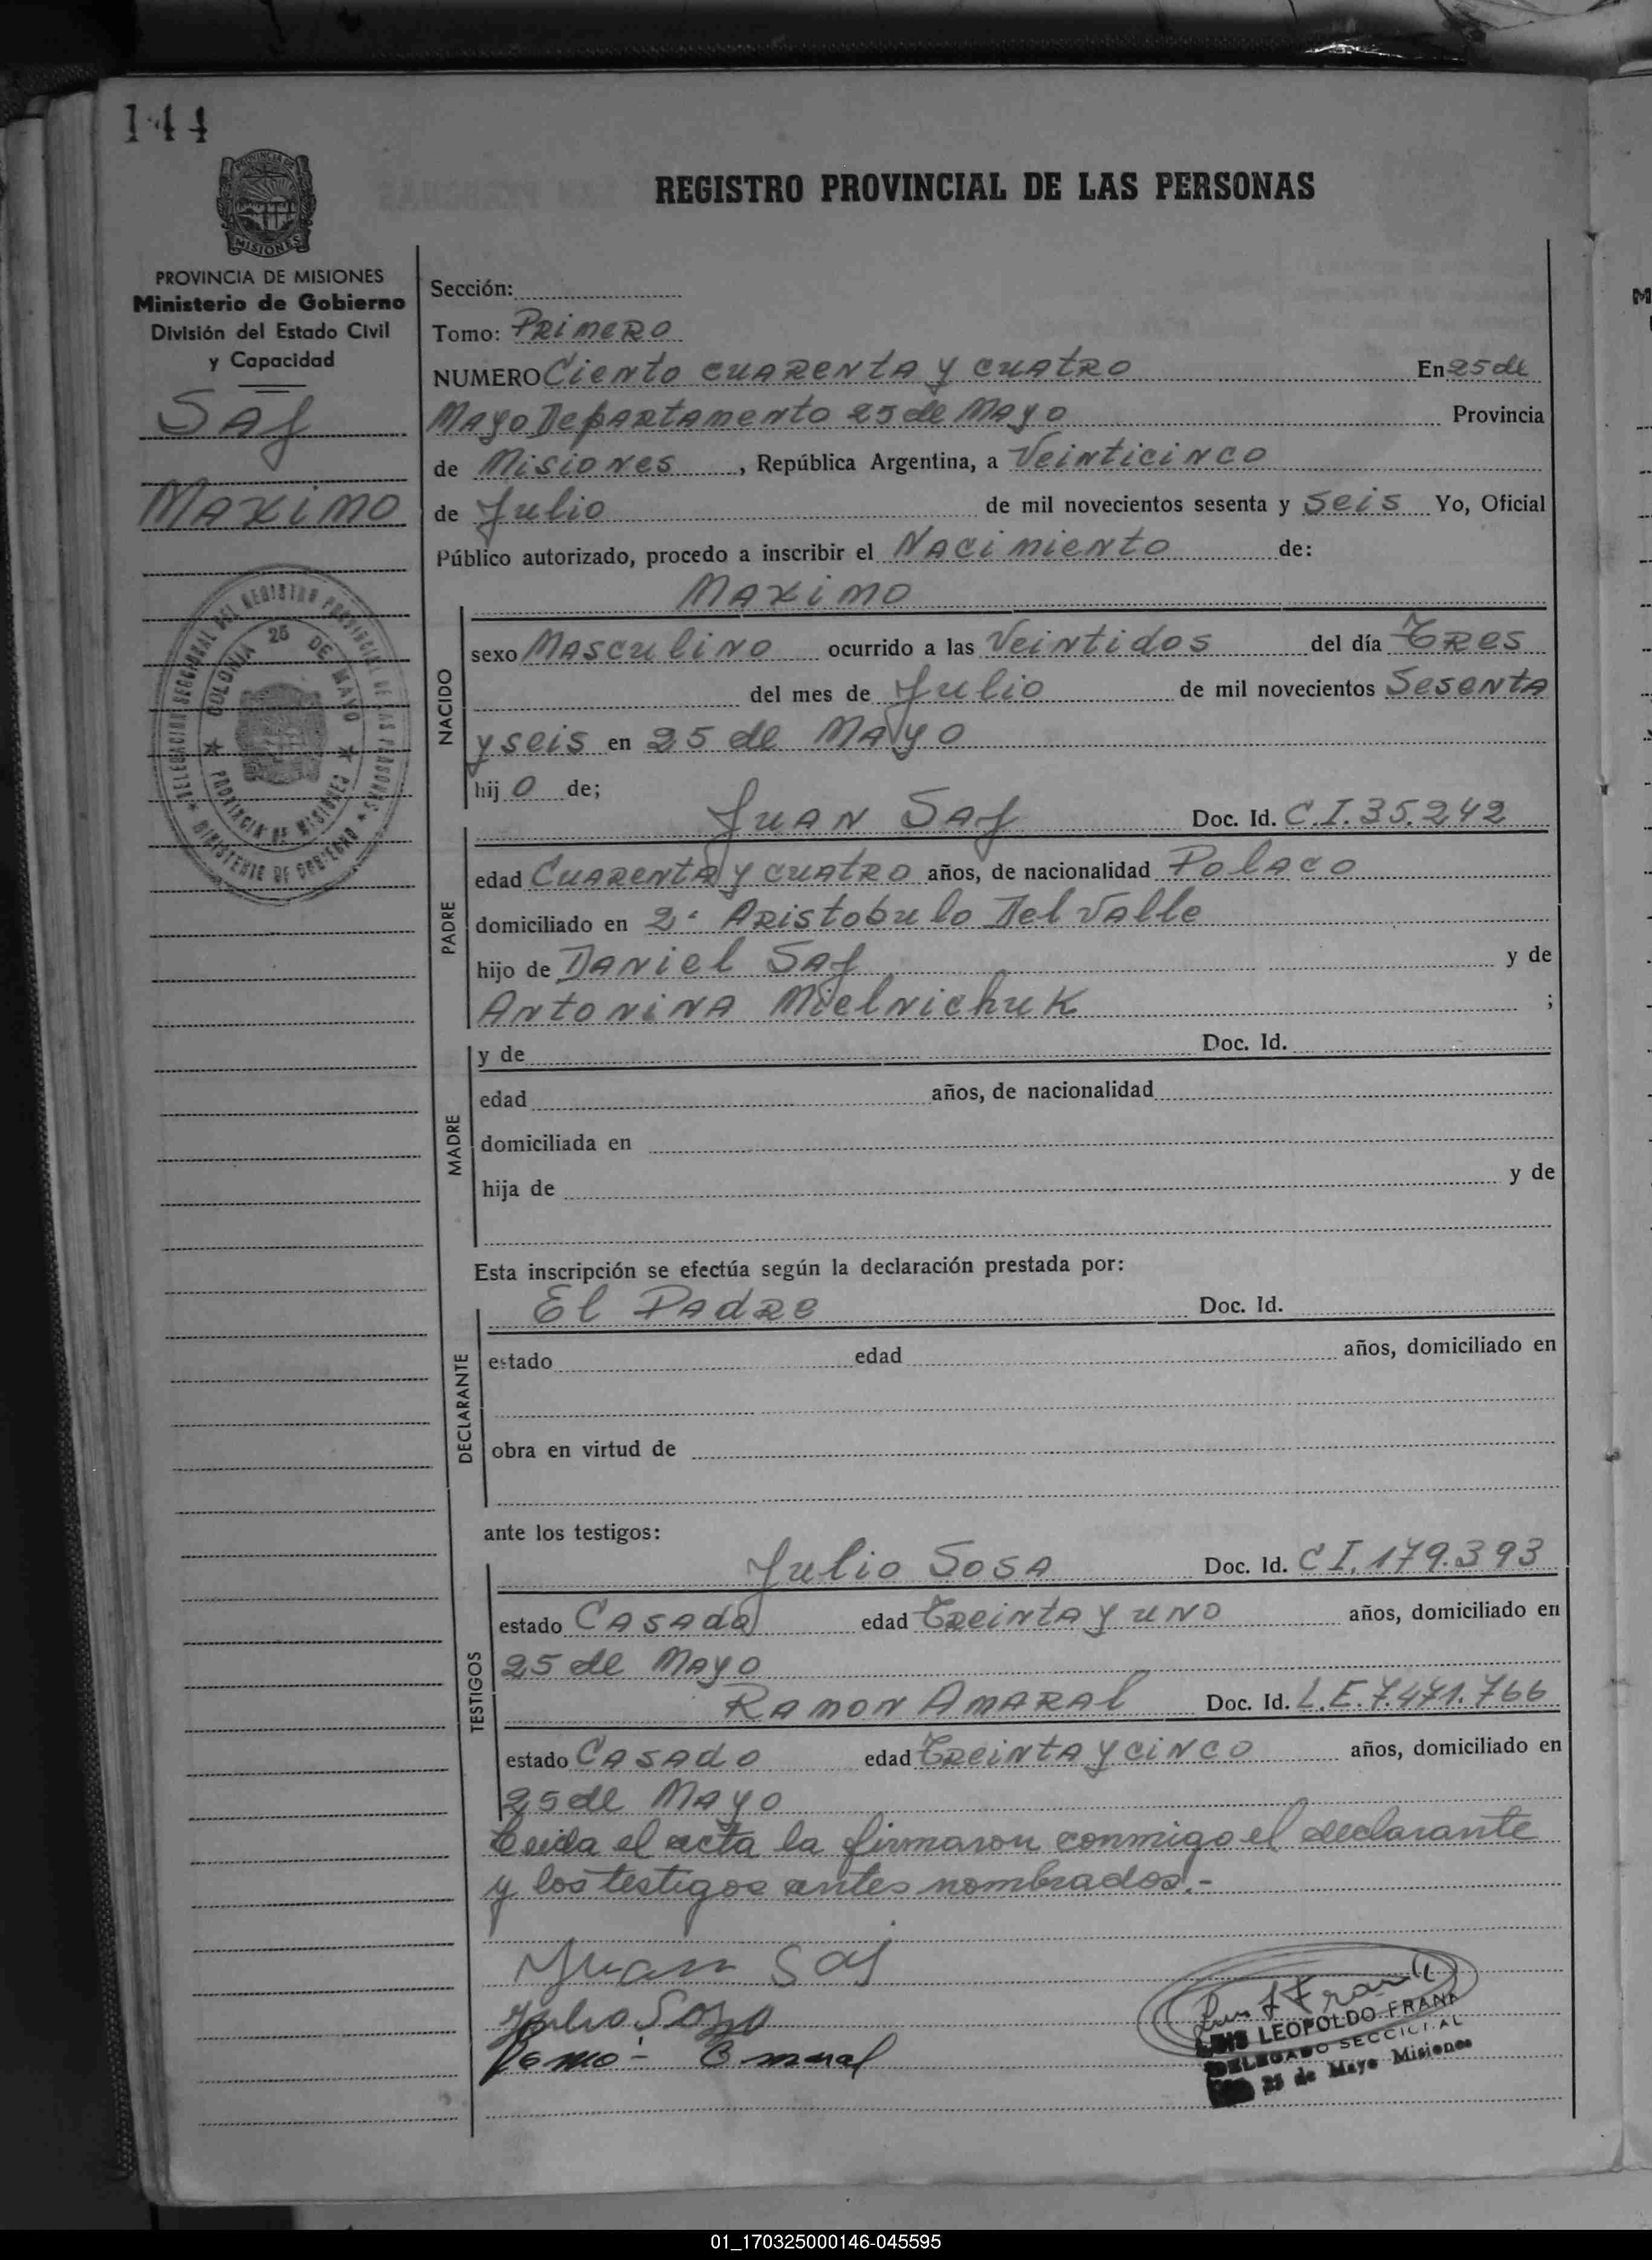 144
PROVINCIA DE
MISIONES
REGISTRO PROVINCIAL DE LAS PERSONAS
PROVINCIA DE MISIONES
Ministerio de Gobierno
División del Estado Civil
y Capacidad
Saj
Maximo
DELEGACION SECCIONAL DEL REGISTRO PROVINCIAL DE LAS PERSONAS
★ MINISTERIO DE GOBIERNO ★
COLONIA 25 DE MAYO
★ PROVINCIA DE MISIONES ★
Sección:
Tomo: Primero
NUMERO Ciento cuarenta y cuatro En 25 de
Mayo Departamento 25 de Mayo Provincia
de Misiones, República Argentina, a Veinticinco
de Julio de mil novecientos sesenta y seis Yo, Oficial
Público autorizado, procedo a inscribir el Nacimiento de:
Maximo
NACIDO
sexo Masculino ocurrido a las Veintidos del día Tres
del mes de Julio de mil novecientos Sesenta
y seis en 25 de Mayo
hij o de;
Juan Saj Doc. Id. C.I. 35.242
PADRE
edad Cuarenta y cuatro años, de nacionalidad Polaco
domiciliado en 2ª Aristobulo Del Valle
hijo de Daniel Saj y de
Antonina Mielnichuk ;
MADRE
y de Doc. Id.
edad años, de nacionalidad
domiciliada en
hija de y de
Esta inscripción se efectúa según la declaración prestada por:
El Padre Doc. Id.
DECLARANTE
estado edad años, domiciliado en
obra en virtud de
ante los testigos:
Julio Sosa Doc. Id. C I. 179.393
TESTIGOS
estado Casado edad Treinta y uno años, domiciliado en
25 de Mayo
Ramon Amaral Doc. Id. L.E. 7.471.766
estado Casado edad Treinta y cinco años, domiciliado en
25 de Mayo
Leida el acta la firmaron conmigo el declarante
y los testigos antes nombrados.-
Juan Saj
Julio Sosa
LUIS LEOPOLDO FRANK
DELEGADO SECCIONAL
25 de Mayo Misiones
01_170325000146-045595